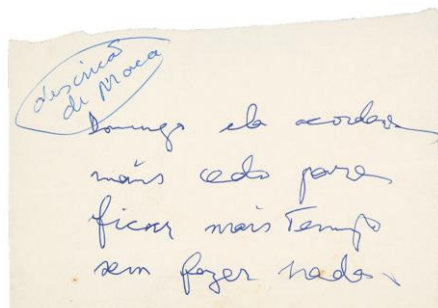 descrição
de Moca
Domingo ela acordava
mais cedo para
ficar mais Tempo
sem fazer nada.